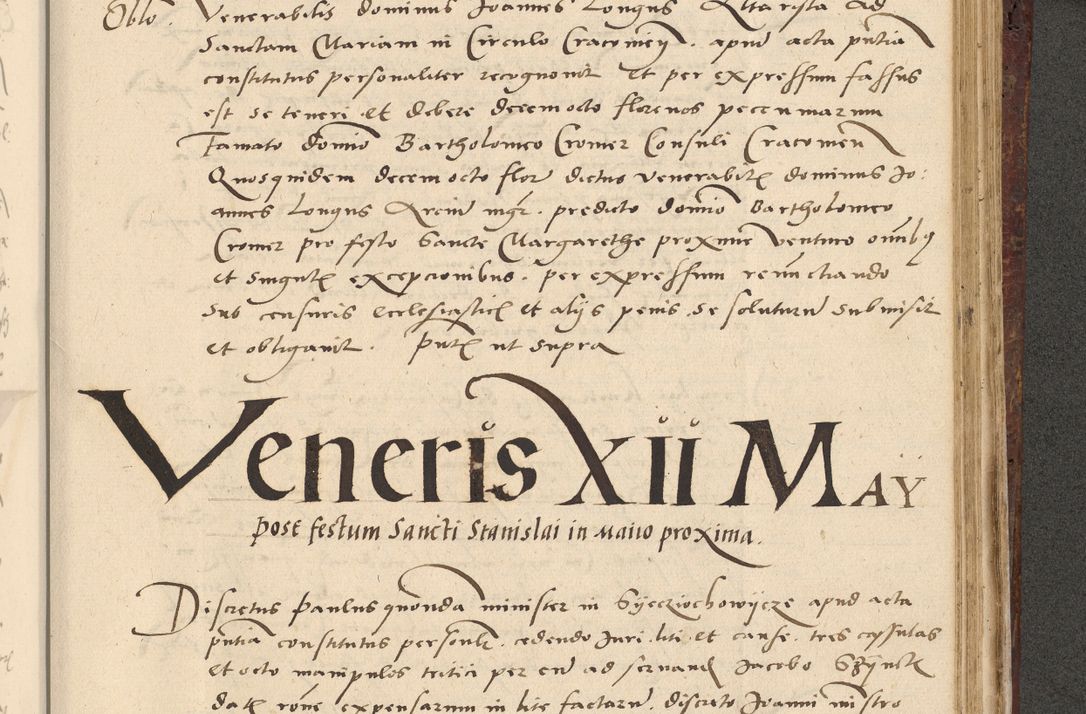 Oblo. Venerabilis dominus Joannes Longus Altarista ad
Sanctam Mariam in Circulo Cracovien. apud acta pntia
constitutus personaliter recognovit et per expressum fassus
est se teneri et debere decem octo florenos pecuniarum
famato domio Bartholomeo Cromer Consuli Cracovien
Quosquidem decem octo flor dictus venerabil dominus Jo:
annes Longus mgr. predicto domio Bartholomeo
Cromer pro festo Sancte Margarethe proxime venturo omnibq
et singul excepcionibus. per expressum renunctiando
sub censuris ecclesiastic et alijs penis se soluturu submisit
et obligavit. Pntl ut supra
Veneris XII May
post festum Sancti Stanislai in Maiio proxima.
Discretus Paulus quonda minister in apud acta
pntia constitutus personlr. cedendo Juri liti et cause. tres cassulas
et octo manipulos tritici per eu ad Jacobo
dat rone expensarum in lite factaru. discreto Joanni mistro